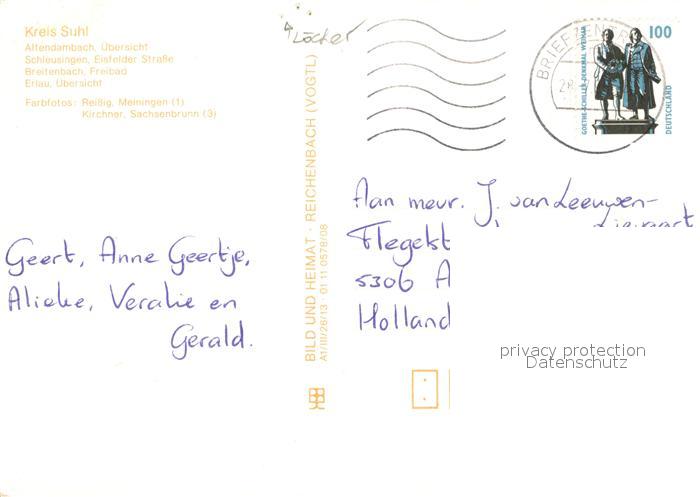 Kreis Suhl
Altendambach, Übersicht
Schleusingen, Eisfelder Straße
Breitenbach, Freibad
Erlau, Übersicht
Farbfotos: Reißig, Meiningen (1)
Kirchner, Sachsenbrunn (3)
4 Löcher
BILD UND HEIMAT · REICHENBACH (VOGTL)
A1/III/26/13 · 01 11 0578/08
BRIEFZENTR
GOETHE-SCHILLER-DENKMAL WEIMAR
100
DEUTSCHLAND
Aan mevr. J. van Leeuwen-
Flegelst
5306 A
Holland
Geert, Anne Geertje,
Alieke, Veralie en
Gerald.
privacy protection
Datenschutz